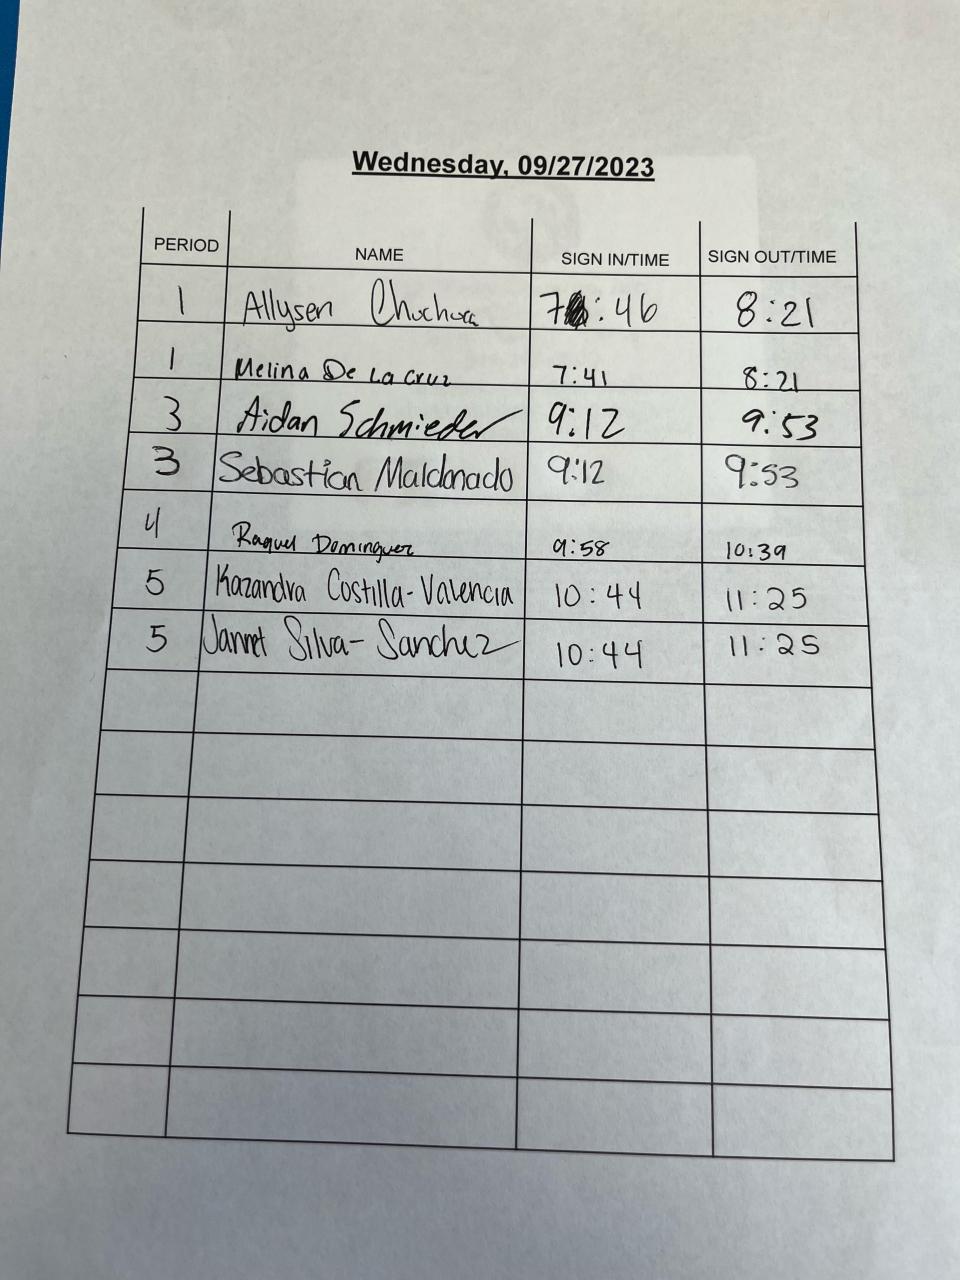 Wednesday, 09/27/2023
PERIOD NAME SIGN IN/TIME SIGN OUT/TIME
1 Allysen Chuchuca 7:46 8:21
1 Melina De La Cruz 7:41 8:21
3 Aidan Schmieder 9:12 9:53
3 Sebastian Maldonado 9:12 9:53
4 Raquel Dominguez 9:58 10:39
5 Kazandra Costilla-Valencia 10:44 11:25
5 Jannet Silva-Sanchez 10:44 11:25